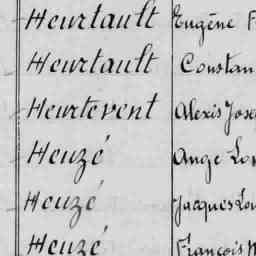 Heurtault Eugène F
Heurtault Constan
Heurtevent Alexis Jose
Heuzé Ange Lou
Heuzé Jacques Lou
Heuzé François M